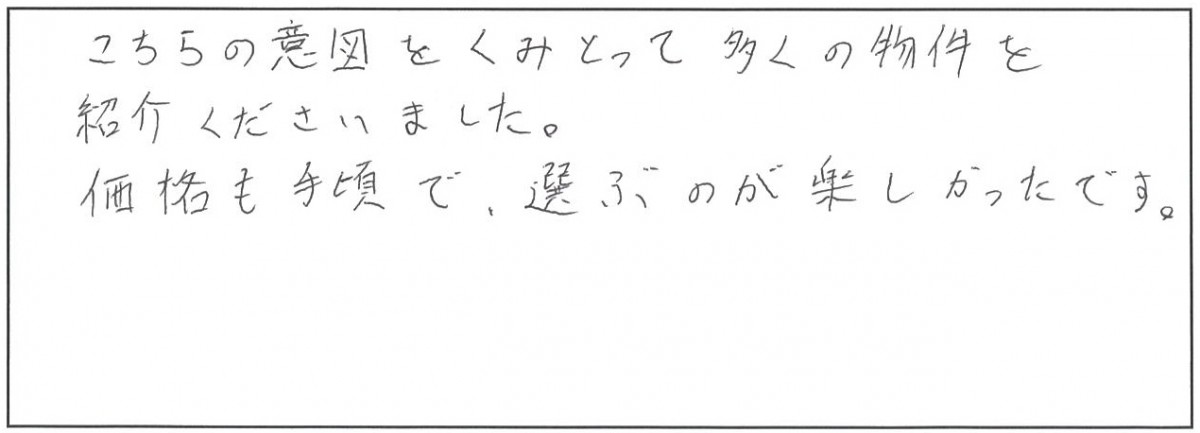 こちらの意図をくみとって多くの物件を
紹介くださいました。
価格も手頃で、選ぶのが楽しかったです。